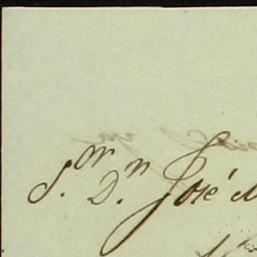 S.or D.n José